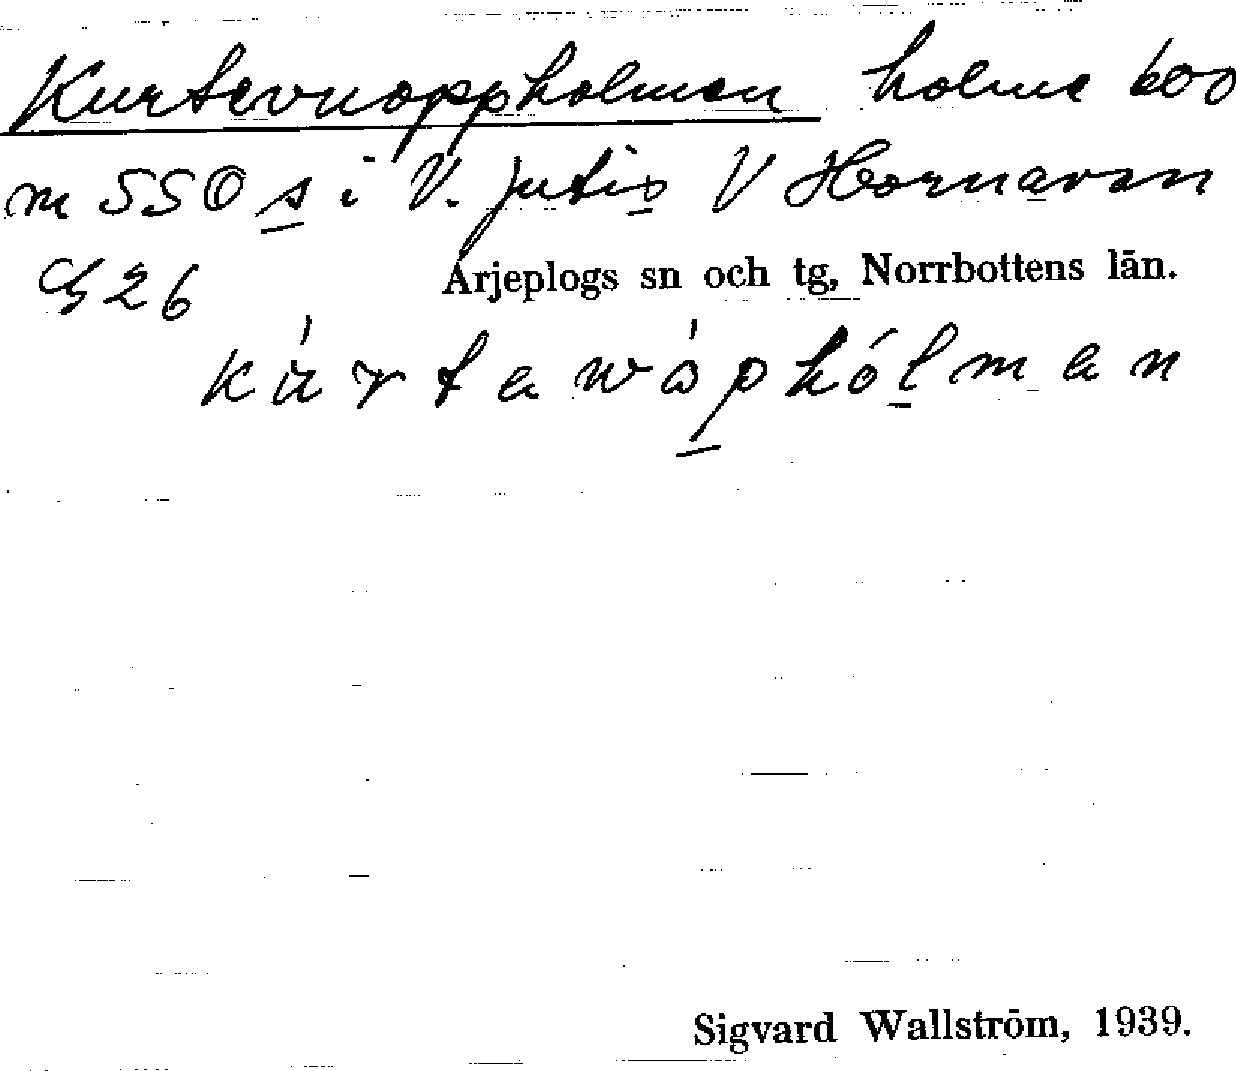 Kurtevuoppholmen holme 600
m SSO s i V. Jutis V Hornavan
Arjeplogs sn och tg, Norrbottens län.
G 26
kúrtawåphólman
Sigvard Wallström, 1939.